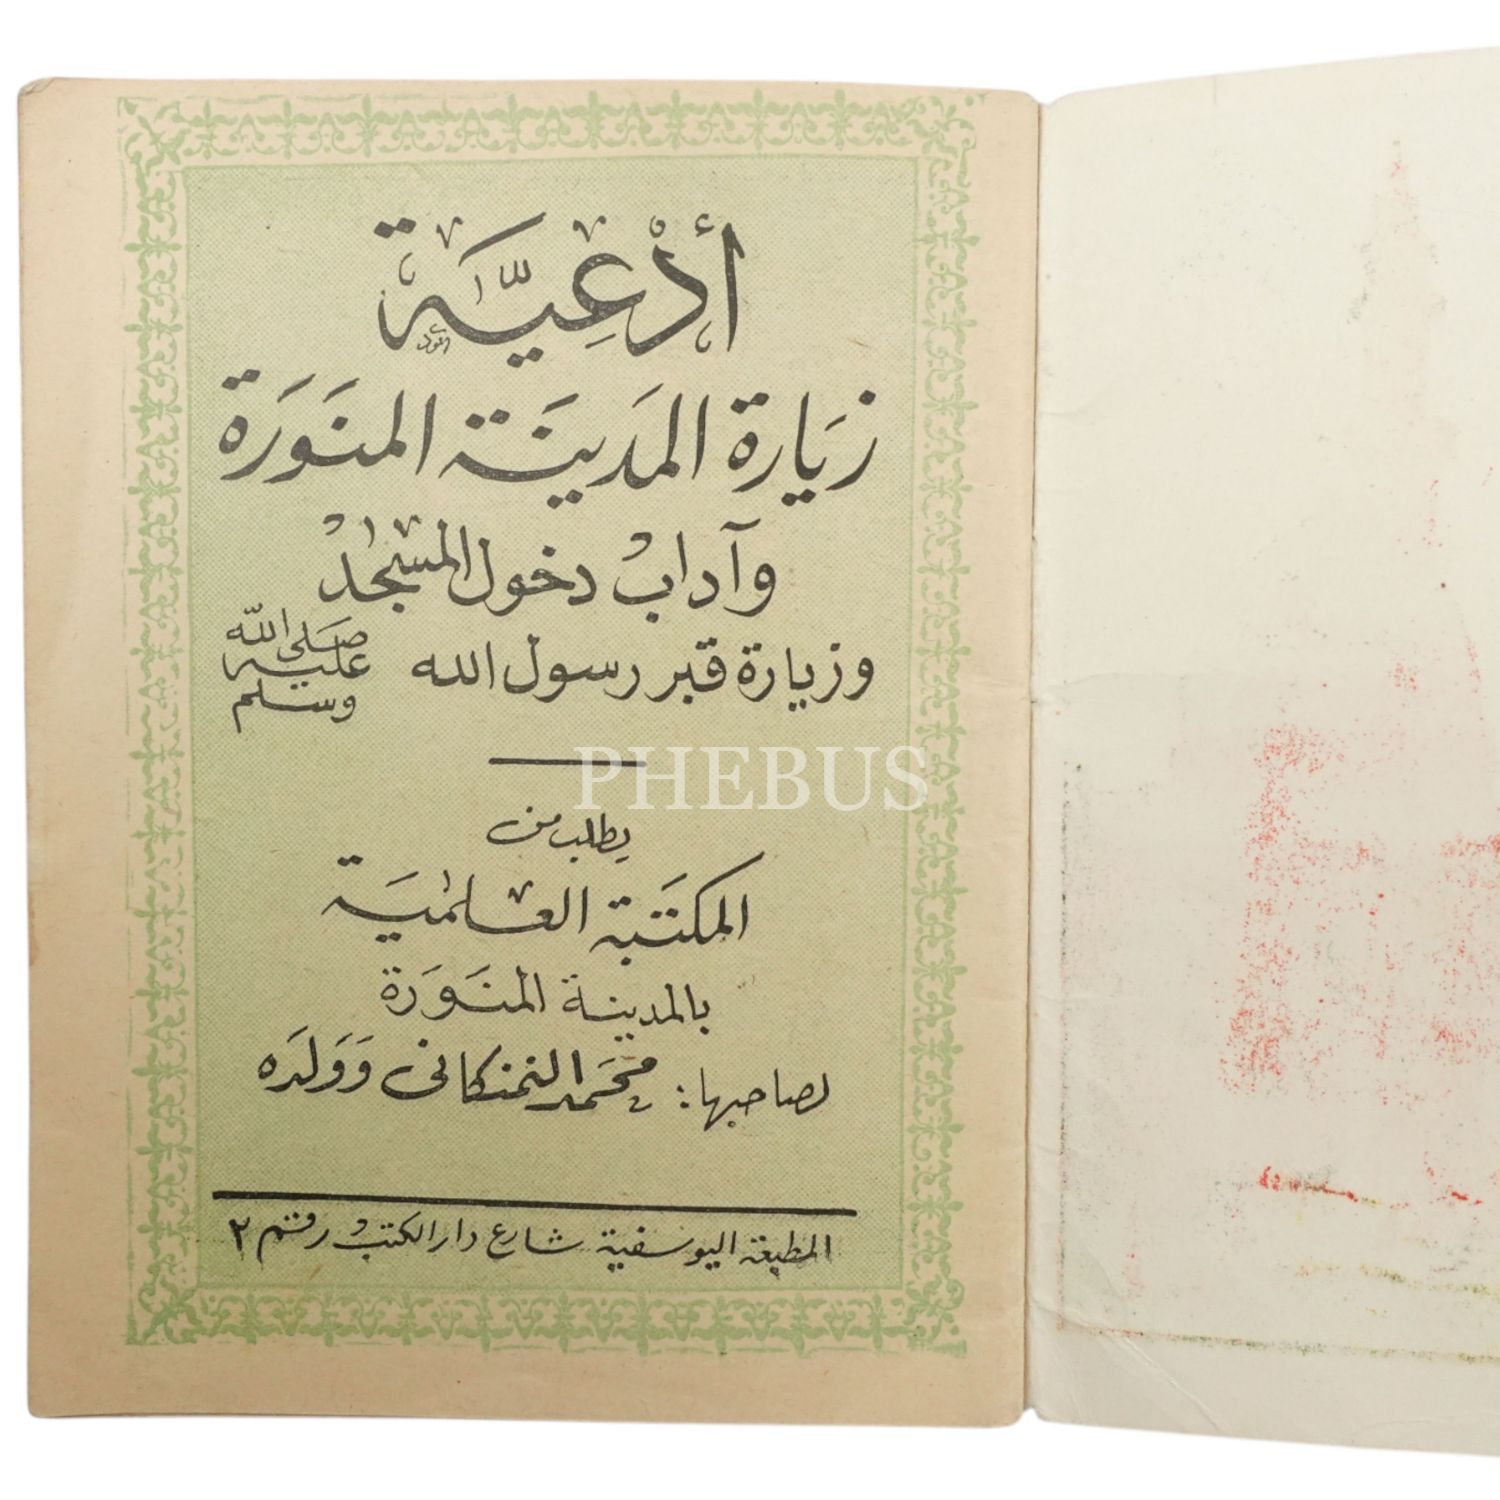 أدْعِيَّة
زيَارة المَدينَة المنَوَرَة
وآدابْ دخول المسجد
وزيارة قبر رسول الله صَلى الله عليه وسلم
PHEBUS
يطلب من
المكتَبَة العلميَة
بالمدينة المنَوَرَة
لصاحبها: محمَد النمنكانى وَوَلدَه
المطبعة اليوسفية شارع دار الكتب رقم ٢